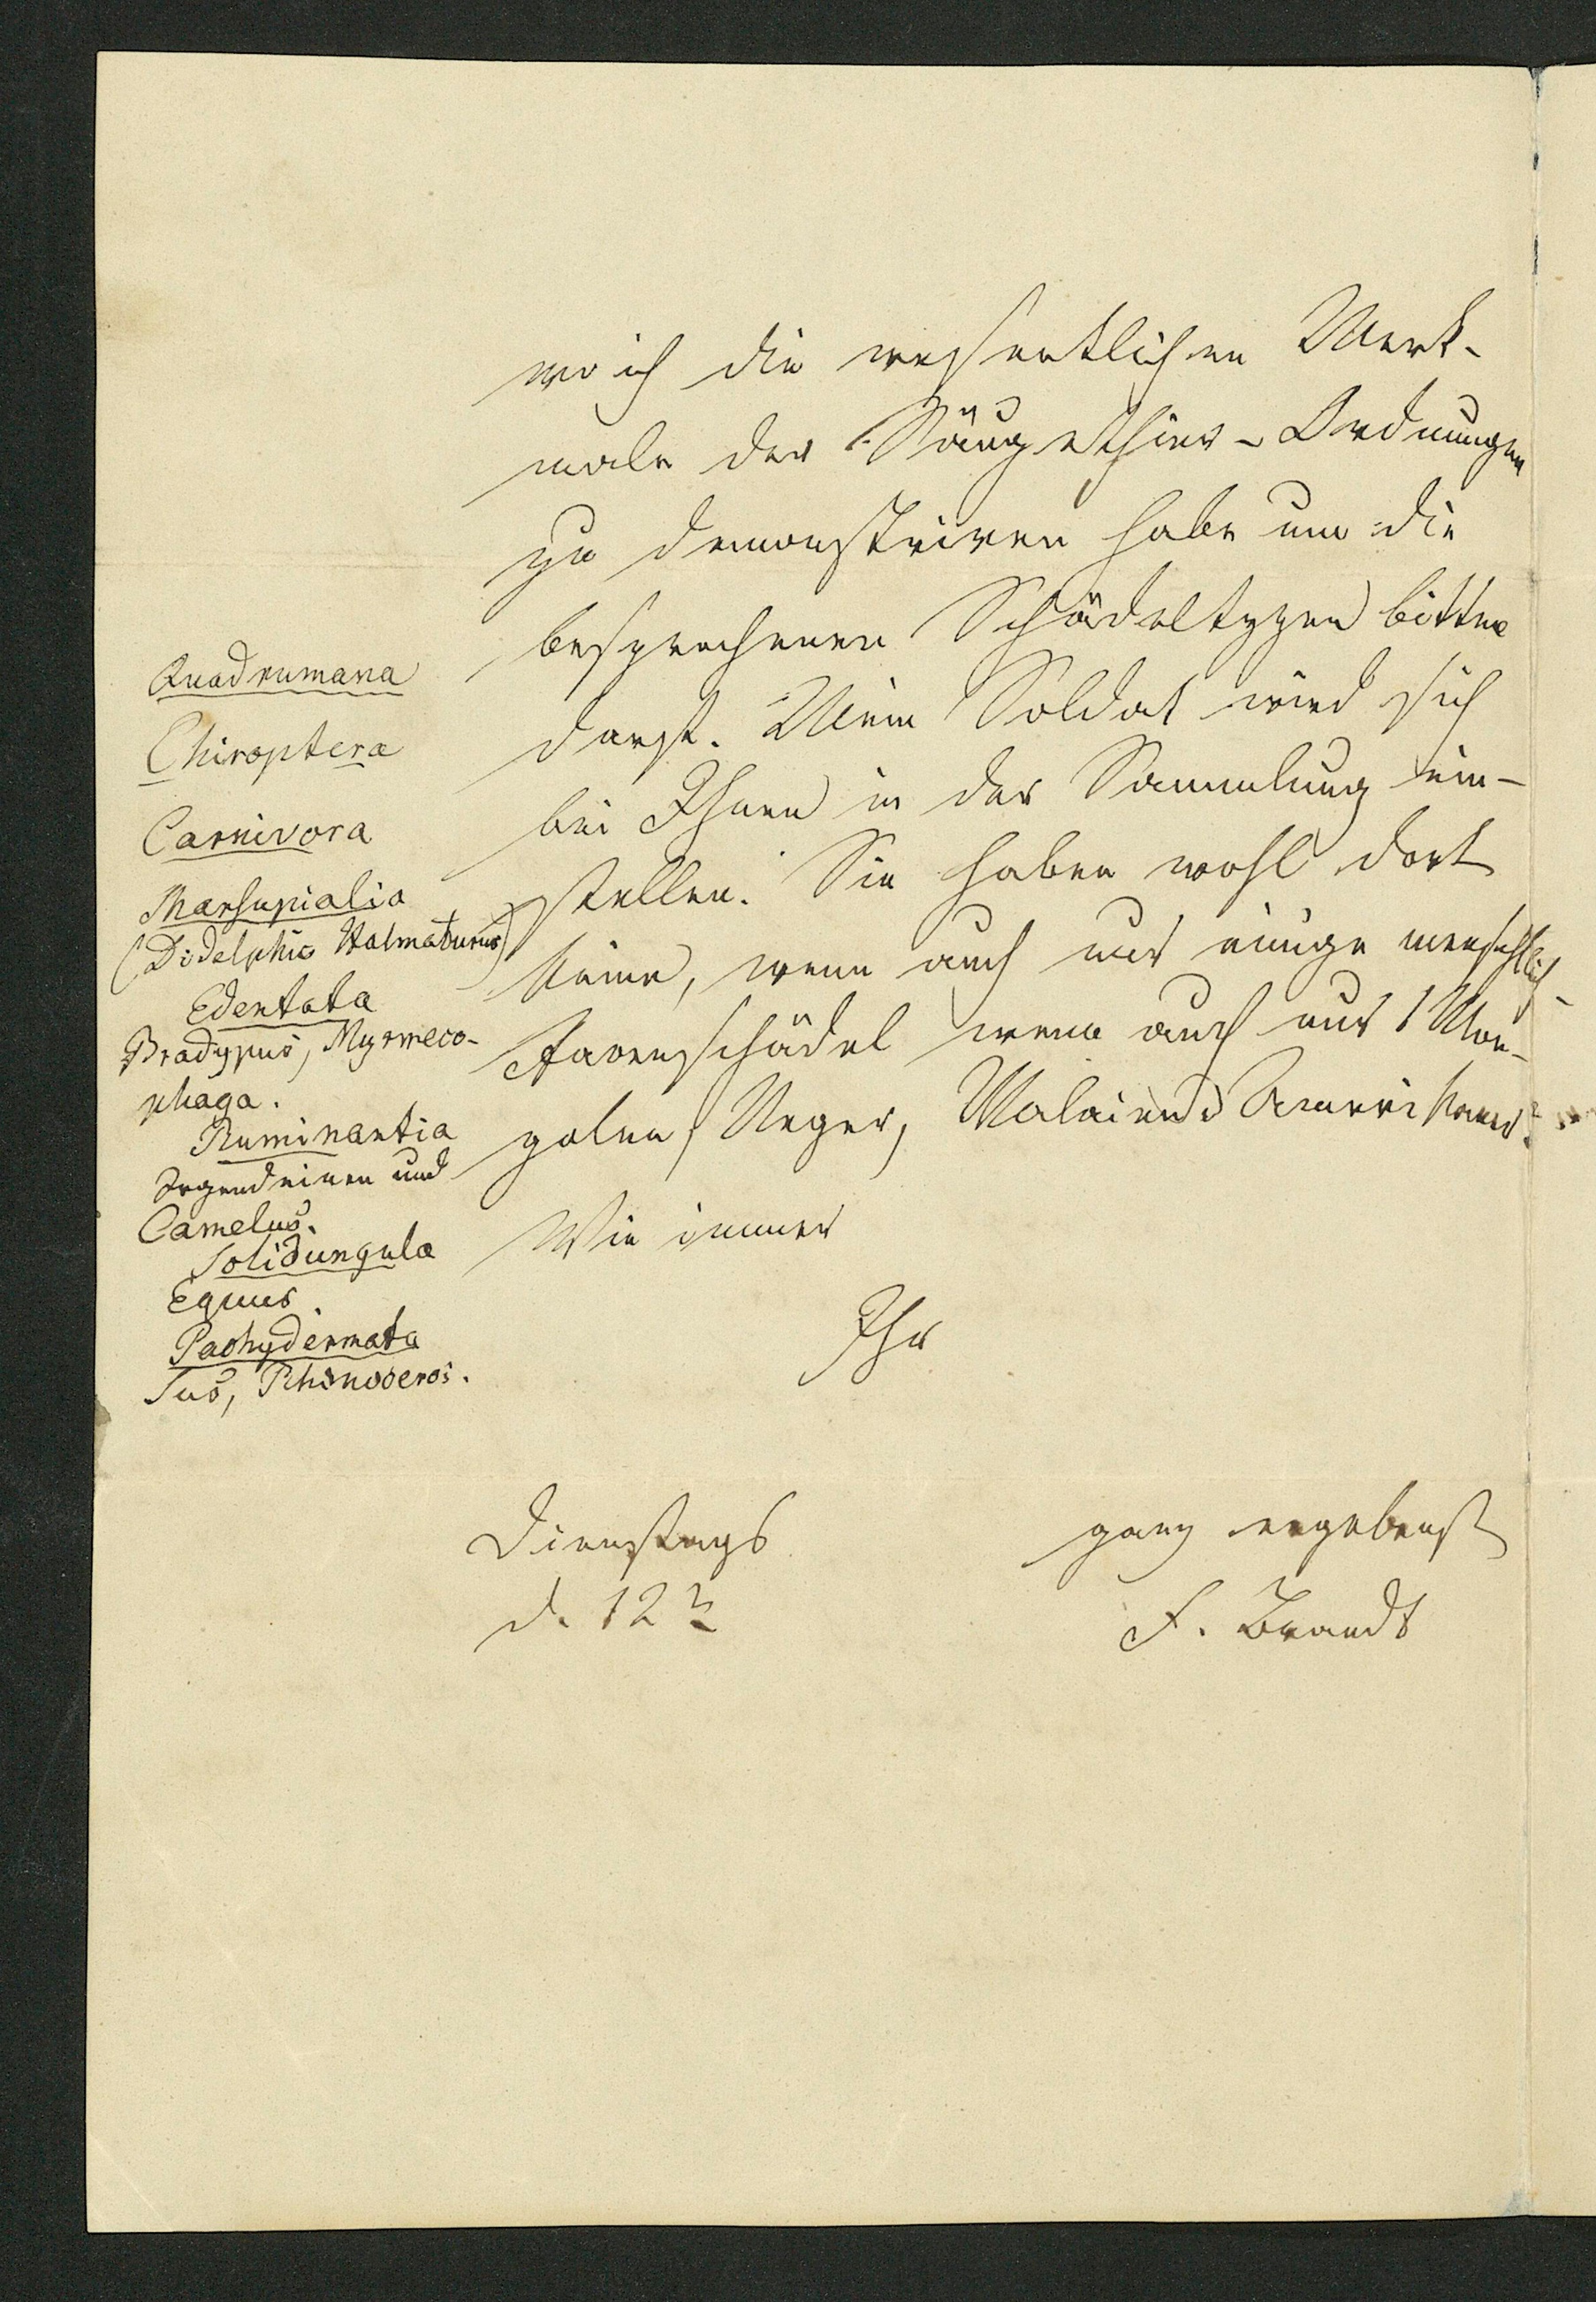 wo ich die wesentlichen Merk-
male der Säugethier-Ordnungen
zu demonstriren habe um die
besprochenen Schädeltypen bitten
darf. Mein Soldat wird sich
bei Ihnen in der Sammlung ein-
stellen. Sie haben wohl dort
keine, wenn auch nur einige menschlich
Racenschädel wenn auch nur 1 Mon-
golen, Neger, Malaien Amerikaner?
Wie immer
Ihr
ganz ergebenst
F. Brandt
Dienstags
d. 12
Quadrumana
Chiroptera
Carnivora
Marsupialia
(Didelphis Halmaturus)
Edentata
Bradypus, Myrmeco-
phaga.
Ruminantia
Irgend einen und
Camelus.
Solidungula
Equus.
Pachydermata
Sus, Rhinoceros.